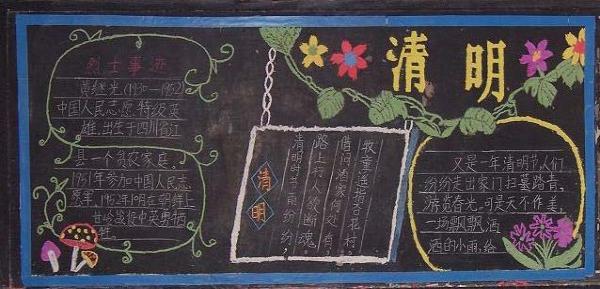 清明
烈士事迹
黄继光(1930—1952)
中国人民志愿 特级英
雄.出生于四川省江
县一个贫农家庭,
1951年参加中国人民志
愿军,1952年10月在朝鲜上
甘岭战役中英勇牺
牲。
清明
清明时节雨纷纷,
路上行人欲断魂。
借问酒家何处有,
牧童遥指杏花村。
又是一年清明节人们
纷纷走出家门扫墓踏青,
游览春光,可是天不作美,
一场飘飘洒
洒的小雨,给